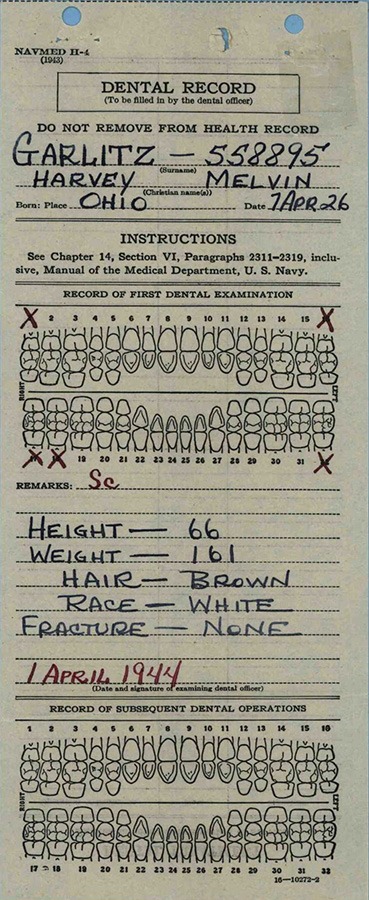 NAVMED H-4
(1943)
DENTAL RECORD
(To be filled in by the dental officer)
DO NOT REMOVE FROM HEALTH RECORD
GARLITZ — 558895
(Surname)
HARVEY MELVIN
(Christian name(s))
Born: Place OHIO Date 7 APR. 26
INSTRUCTIONS
See Chapter 14, Section VI, Paragraphs 2311–2319, inclu-
sive, Manual of the Medical Department, U. S. Navy.
RECORD OF FIRST DENTAL EXAMINATION
X 2 3 4 5 6 7 8 9 10 11 12 13 14 15 X
RIGHT LEFT
X X 19 20 21 22 23 24 25 26 27 28 29 30 31 X
REMARKS: Sc
HEIGHT — 66
WEIGHT — 161
HAIR — BROWN
RACE — WHITE
FRACTURE — NONE
1 APRIL 1944
(Date and signature of examining dental officer)
RECORD OF SUBSEQUENT DENTAL OPERATIONS
1 2 3 4 5 6 7 8 9 10 11 12 13 14 15 16
RIGHT LEFT
17 18 19 20 21 22 23 24 25 26 27 28 29 30 31 32
16—10272-2